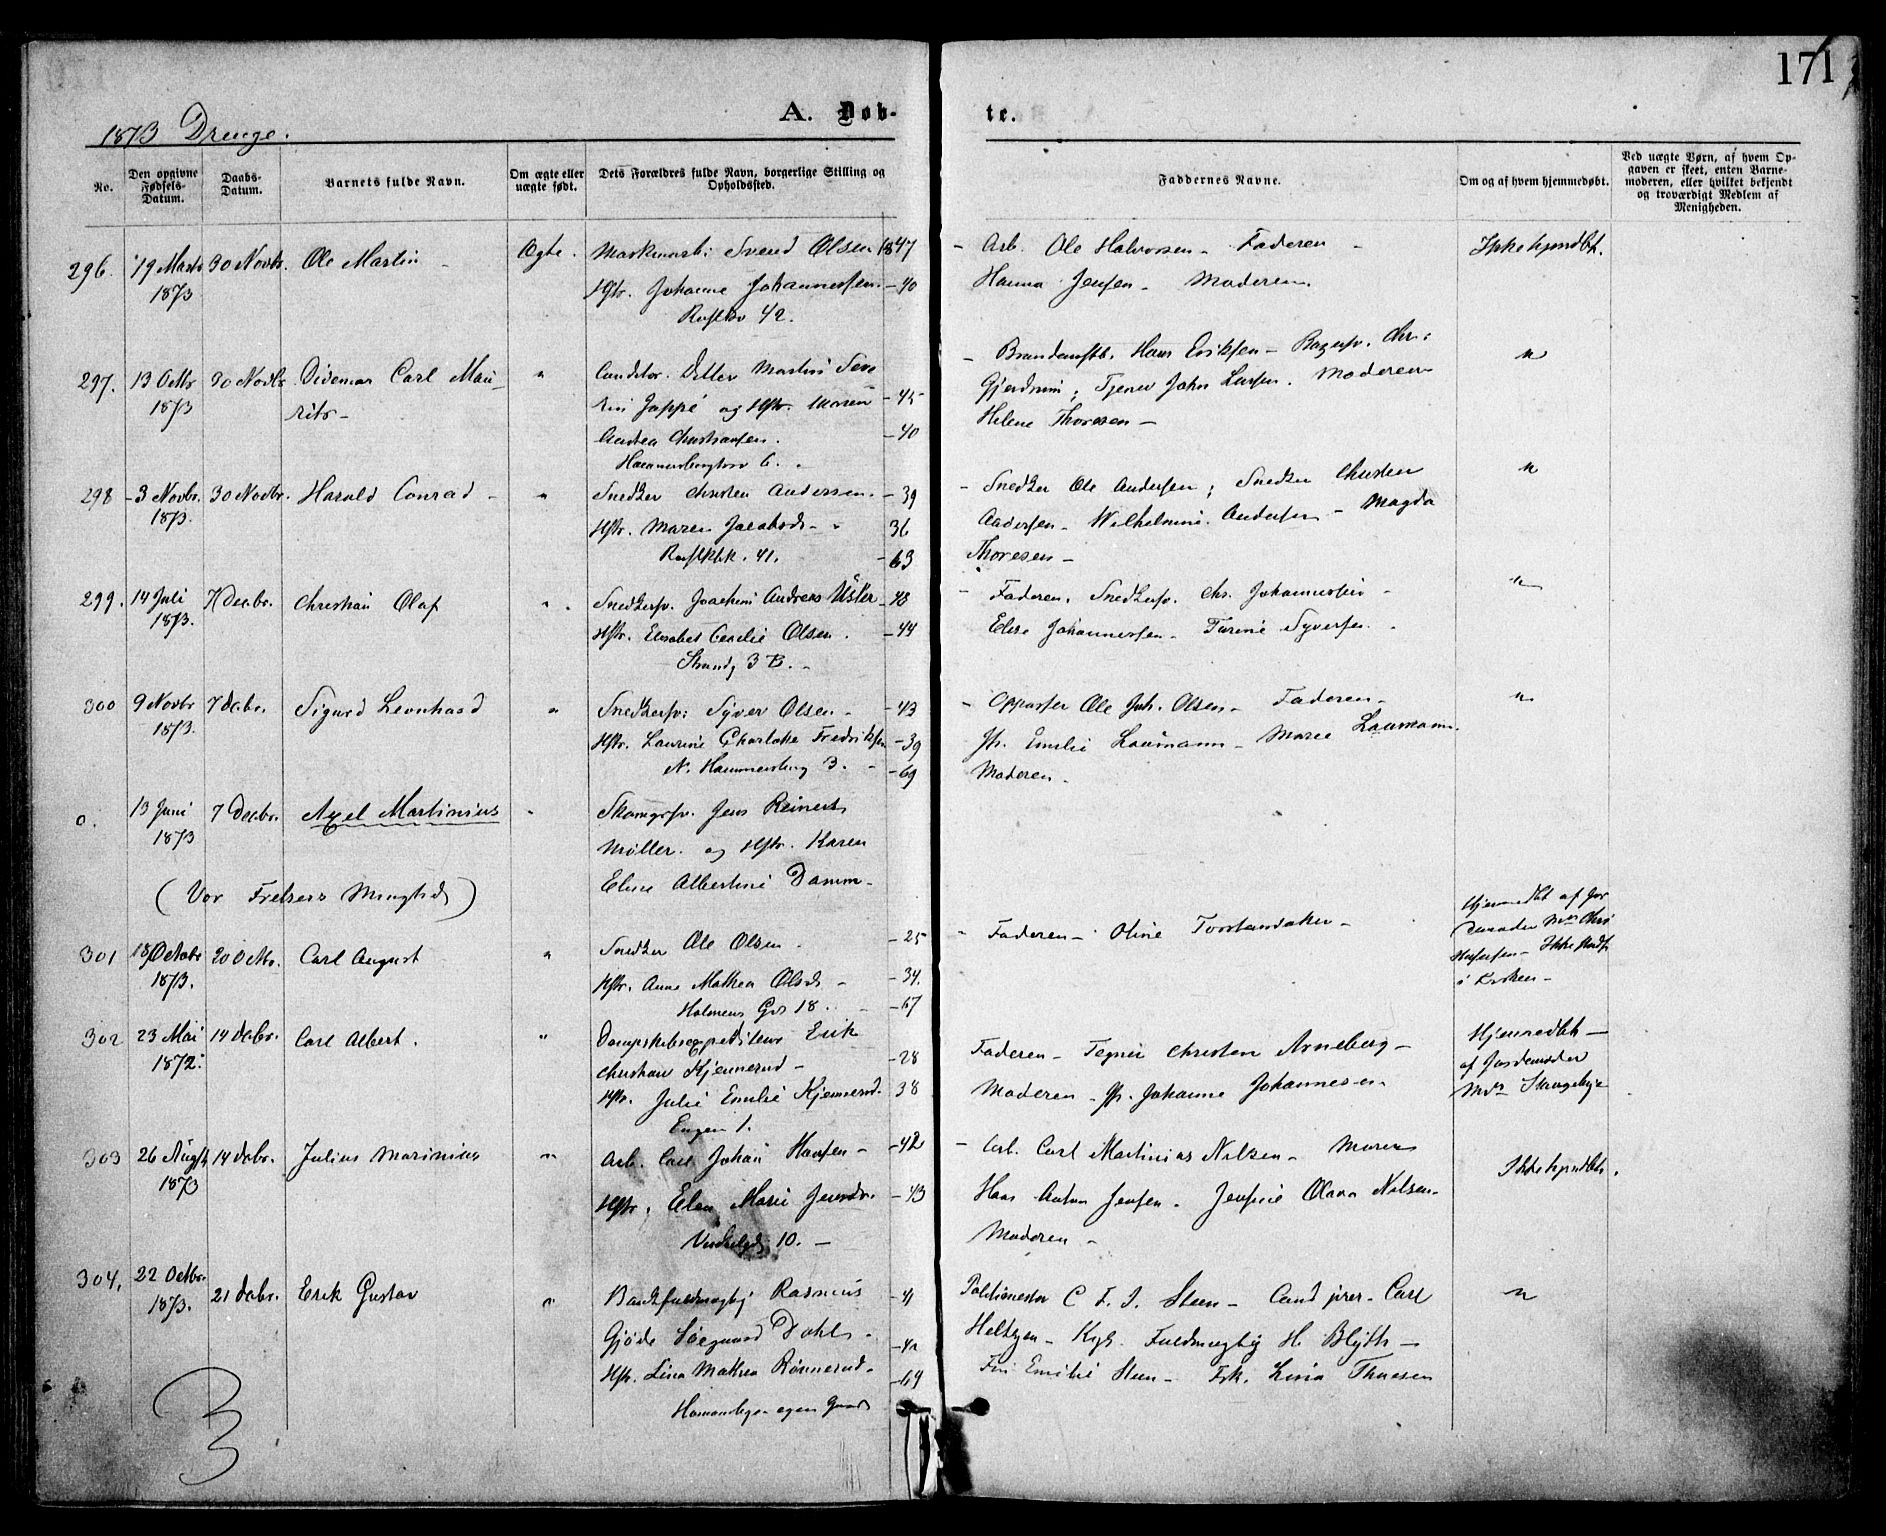 171
1873 Drenge.
A. Døb-
te.
No.
Den opgivne Fødsels-Datum.
Daabs-Datum.
Barnets fulde Navn.
Om ægte eller uægte født.
Dets Forældres fulde Navn, borgerlige Stilling og Opholdssted.
Faddernes Navne.
Om og af hvem hjemmedøbt.
Ved uægte Børn, af hvem Opgaven er skeet, enten Barnemoderen, eller hvilket bekjendt og troværdigt Medlem af Menigheden.
296. 19 Marts 30 Novbr. Ole Martin Ægte. Svend Olsen 1847 – Arb. Ole Halvorsen – Faderen – Ikke hjmdbt.
1873 Hstr. Johanne Johannessen. – 40 Hanna Jensen – Moderen.
42.
297. 13 Octbr 30 Novbr. Didemar Carl Mau- " Conditor. Ditlev Martin Seve – Hans Eriksen – Bagersv. Chr. "
1873 ritz – rin Jappé og Hstr. Maren – 45 Gjerdrum; Tjener John Larsen. Moderen
Andrea Christiansen. – 40 Helene Thoresen –
6.
298 – 3 Novbr. 30 Novbr. Harald Conrad – " Snedker Christen Andersen. – 39 – Snedker Ole Andersen; Snedker Christen "
1873. Hstr. Maren Jacobsd – 36 Andersen – Wilhelmine Andersen – Magda
41. – 63 Thoresen –
299. 14 Juli 7 Decbr. Christian Olaf " Snedkersv. Joachim Andreas Üster – 43 – Faderen. Snedkersv. Chr. Johannesen – "
1873. Hstr. Elisabet Cecilie Olsen. – 44 Elise Johannessen – Turine Syversen.
Strandg 3 B. –
300 9 Novbr 7 Decbr. Sigurd Leonhard " Snedkersv. Syver Olsen – – 43 – Oppasser Ole Joh. Olsen – Faderen – "
1873. Hstr. Laurine Charlotte Fredriksen – 39 Fr. Emilie Laumann – Marie Laumann.
N. Hammersborg 3. – – 69 Moderen –
o. 13 Juni 7 Decbr. Axel Martinius " Skomgrsv. Jens Reinert
1873 Møller. og Hstr. Karen
(Vor Frelsers Mnghd) Elise Albertine Damm –
301 18 Octobr 20 Octbr. Carl August " Snedker Ole Olsen – – 25 – Faderen – Oline – Hjemmedbt af Jor
1873. Hstr. Anne Mathea Olsd – – 34. demoder – Ikke
Holmens Gd 18. – 67 i Kirken –
302 23 Mai 14 Decbr. Carl Albert. " Dampskibsexpeditør Erik Faderen – Tegner Christian Arneberg – Hjemmedbt –
1872. Christian Kjennerud – – 28 Moderen – Fr. Johanne Johannesen – af Jordemoder
Hstr. Julie Emilie Kjennerud. 38
Engen 1.
303 26 Augst 14 Decbr. Julius Marinius " Arb. Carl Johan Hansen – – 42 – Arb. Carl Martinius Nilsen – Ikke hjmdbt.
1873 Hstr. Elen Marie – 43 Hans Anton Jensen – Olava Nilsen –
10. – Moderen –
304. 22 Octbr. 21 Decbr. Erik Gustav " Bankfuldmægtig Rasmus – 41 C. F. J. Steen – Cand jur – Carl "
1873. Gjøde Søegaard Dahl – – 42 Heltzen – Kgl. Fuldmægtig H. Blyth –
Hstr. Lina Mathea Rønnerud – – 69 Emilie Steen – Frk. Lina Thuesen
egen Gaard
3